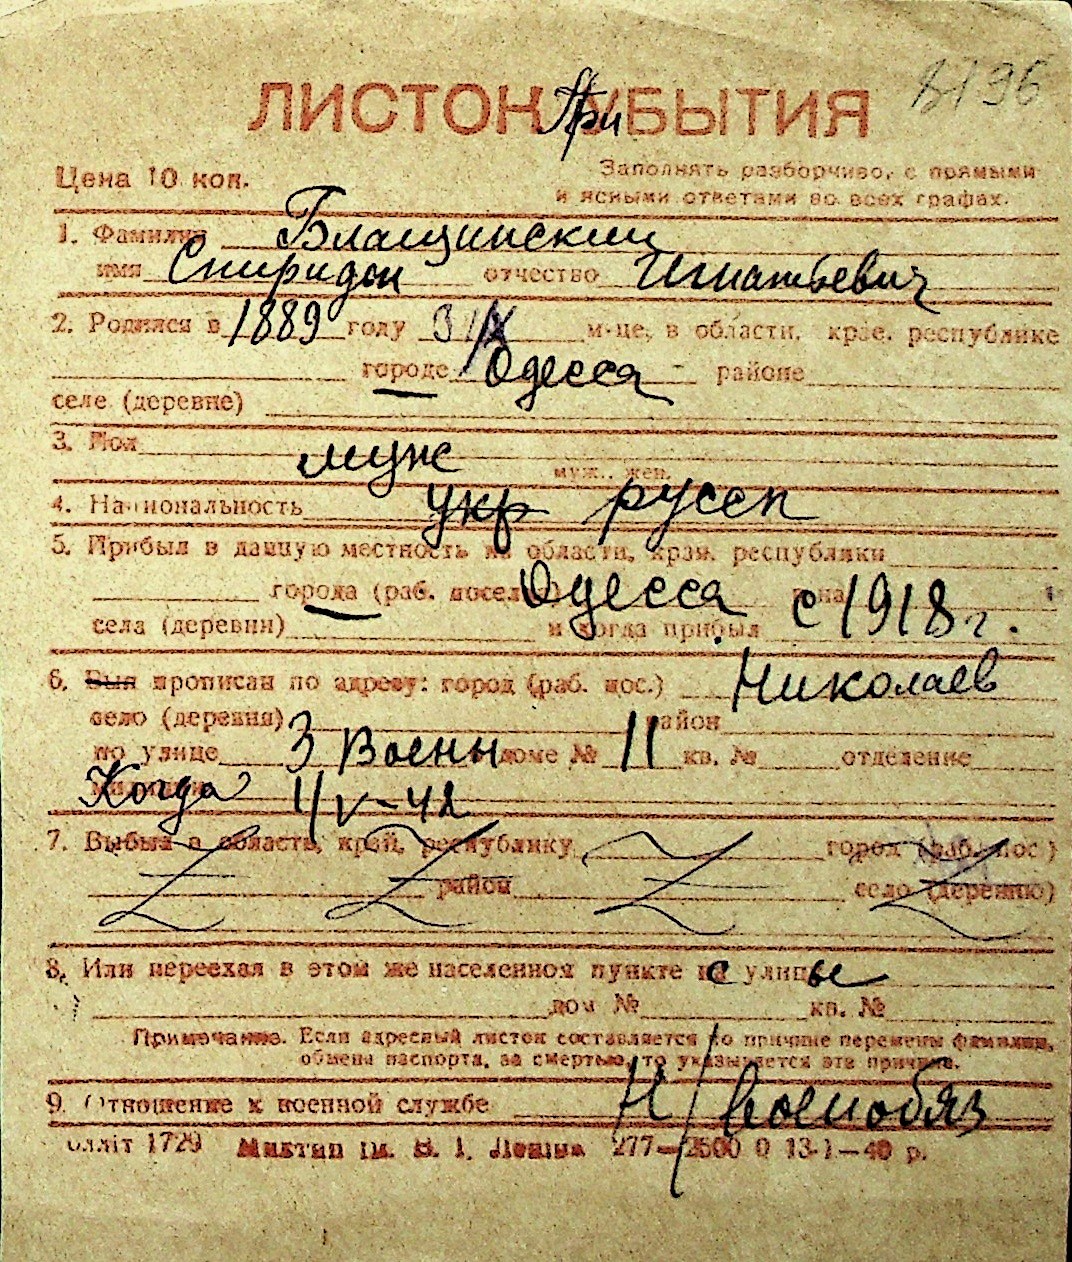 ЛИСТОК При УБЫТИЯ
Цена 10 коп.
Заполнять разборчиво, с прямыми
и ясными ответами во всех графах.
1. Фамилия Блащинский
имя Спиридон отчество Игнатьевич
2. Родился в 1889 году 3/IX м-це, в области, крае, республике
городе Одесса районе
селе (деревне)
3. Пол муж
муж., жен.
4. Национальность укр русск
5. Прибыл в данную местность из области, края, республики
города (раб. поселка) Одесса
села (деревни) и когда прибыл с 1918 г.
6. Был прописан по адресу: город (раб. пос.) Николаев
село (деревня) район
по улице 3 Военн доме № 11 кв. № отделение
милиции Когда 1/V-42
7. Выбыл в область, край, республику город (раб. пос.)
район село (деревню)
8. Или переехал в этом же населенном пункте с улицы
дом № кв. №
Примечание. Если адресный листок составляется по причине перемены фамилии,
обмена паспорта, за смертью, то указывается эта причина.
9. Отношение к военной службе Н/военобяз
1729 Миктип ім. В. І. Леніна 277—2500 0 13-1—40 р.